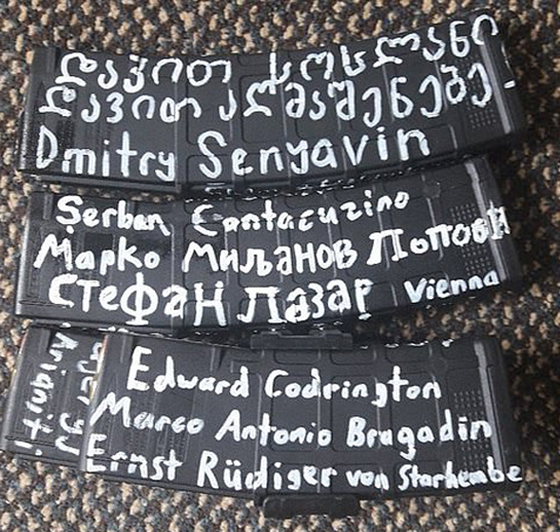 დავით სოსლანი
დავით აღმაშენებე-
Dmitry Senyavin
Şerban Cantacuzino
Марко Миљанов Попови
Стефан Лазар Vienna
Edward Codrington
Marco Antonio Bragadin
Ernst Rüdiger von Starhembe
Arianiti